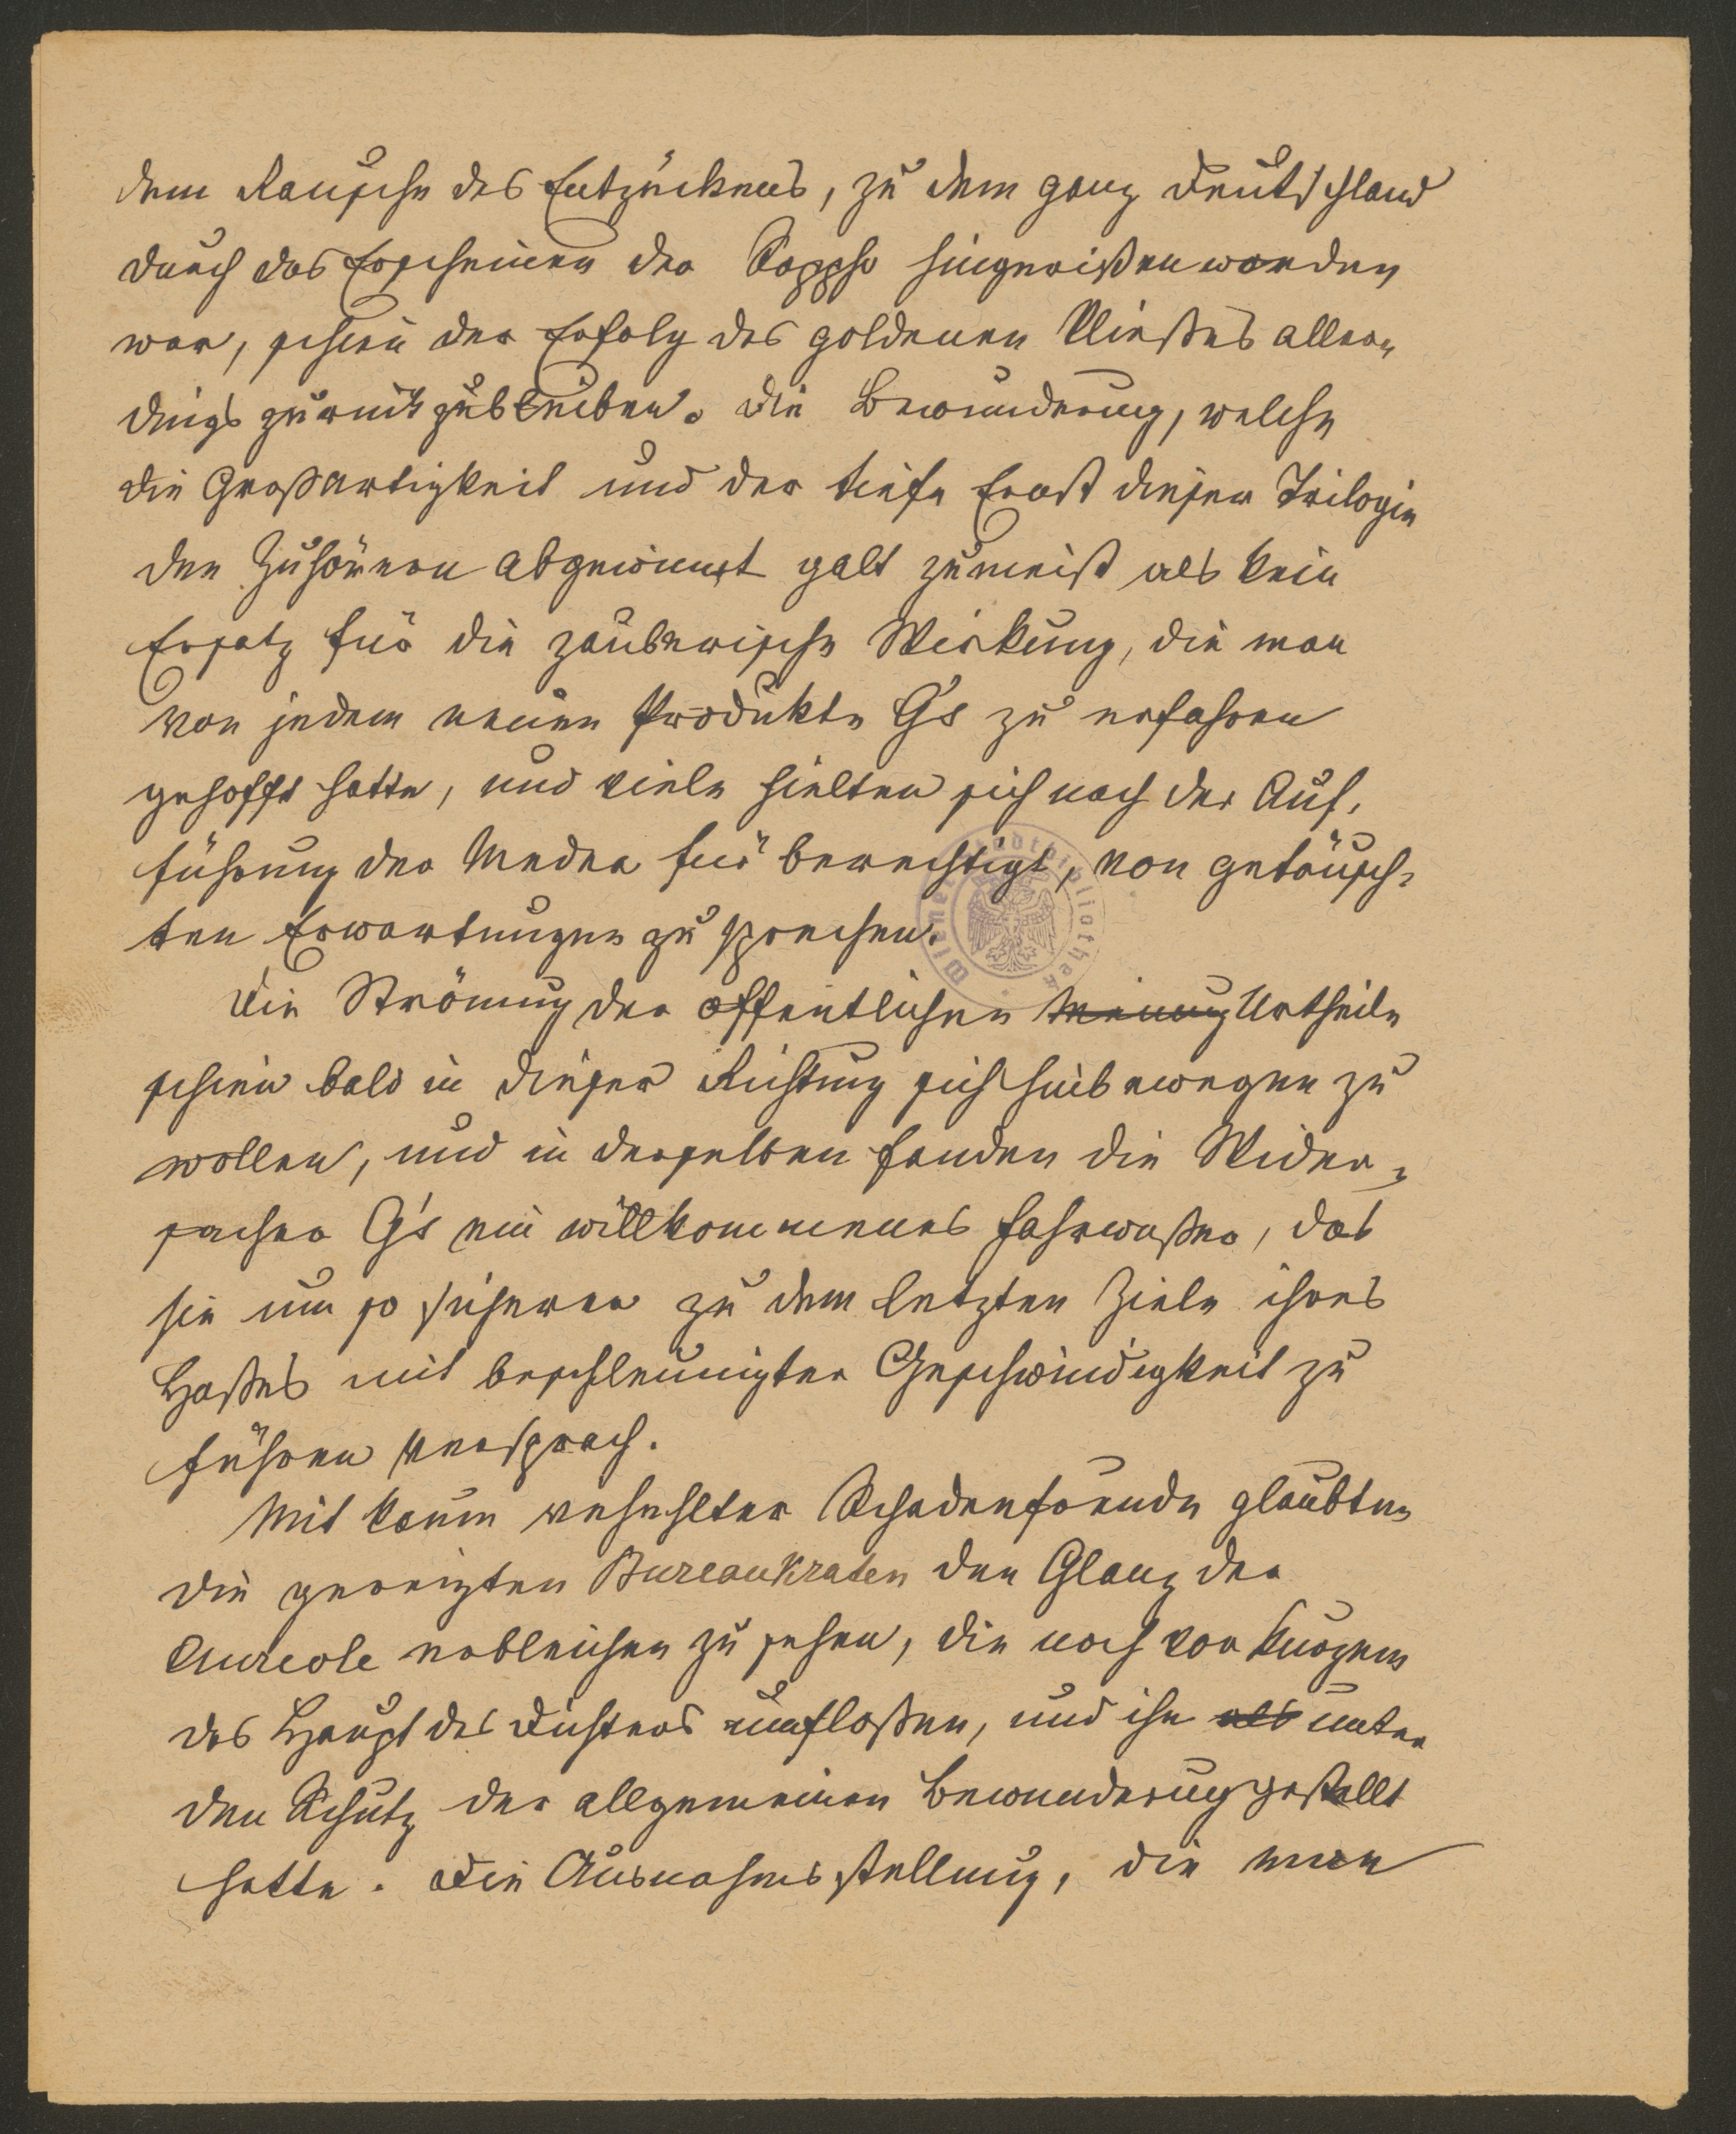 dem Rausche des Entzückens, zu dem ganz Deutschland
durch das Erscheinen der Sappho hingerißen worden
war, schien der Erfolg des goldenen Vließes aller-
dings zurückzubleiben. Die Bewunderung, welche
die Großartigkeit und der tiefe Ernst dieser Trilogie
den Zuhörern abgewinnt galt zumeist als kein
Ersatz für die zauberische Wirkung, die man
von jedem neuen Produkte G's zu erfahren
gehofft hatte, und viele hielten sich nach der Auf-
führung der Medea für berechtigt, von getäusch-
ten Erwartungen zu sprechen.
Wiener Stadtbibliothek
Die Strömung der öffentlichen Meinung Urtheile
schien bald in dieser Richtung sich hinbewegen zu
wollen, und in derselben fanden die Wider-
sacher G's ein willkommenes Fahrwaßer, das
sie um so sicherer zu dem letzten Ziele ihres
Haßes mit beschleunigter Geschwindigkeit zu
führen versprach.
Mit kaum verhehlter Schadenfreude glaubten
die gereizten Bureaukraten den Glanz der
Aureole erbleichen zu sehen, die noch vor Kurzem
das Haupt des Dichters umfloßen, und ihn als unter
den Schutz der allgemeinen Bewunderung gestellt
hatte. Die Ausnahmsstellung, die man